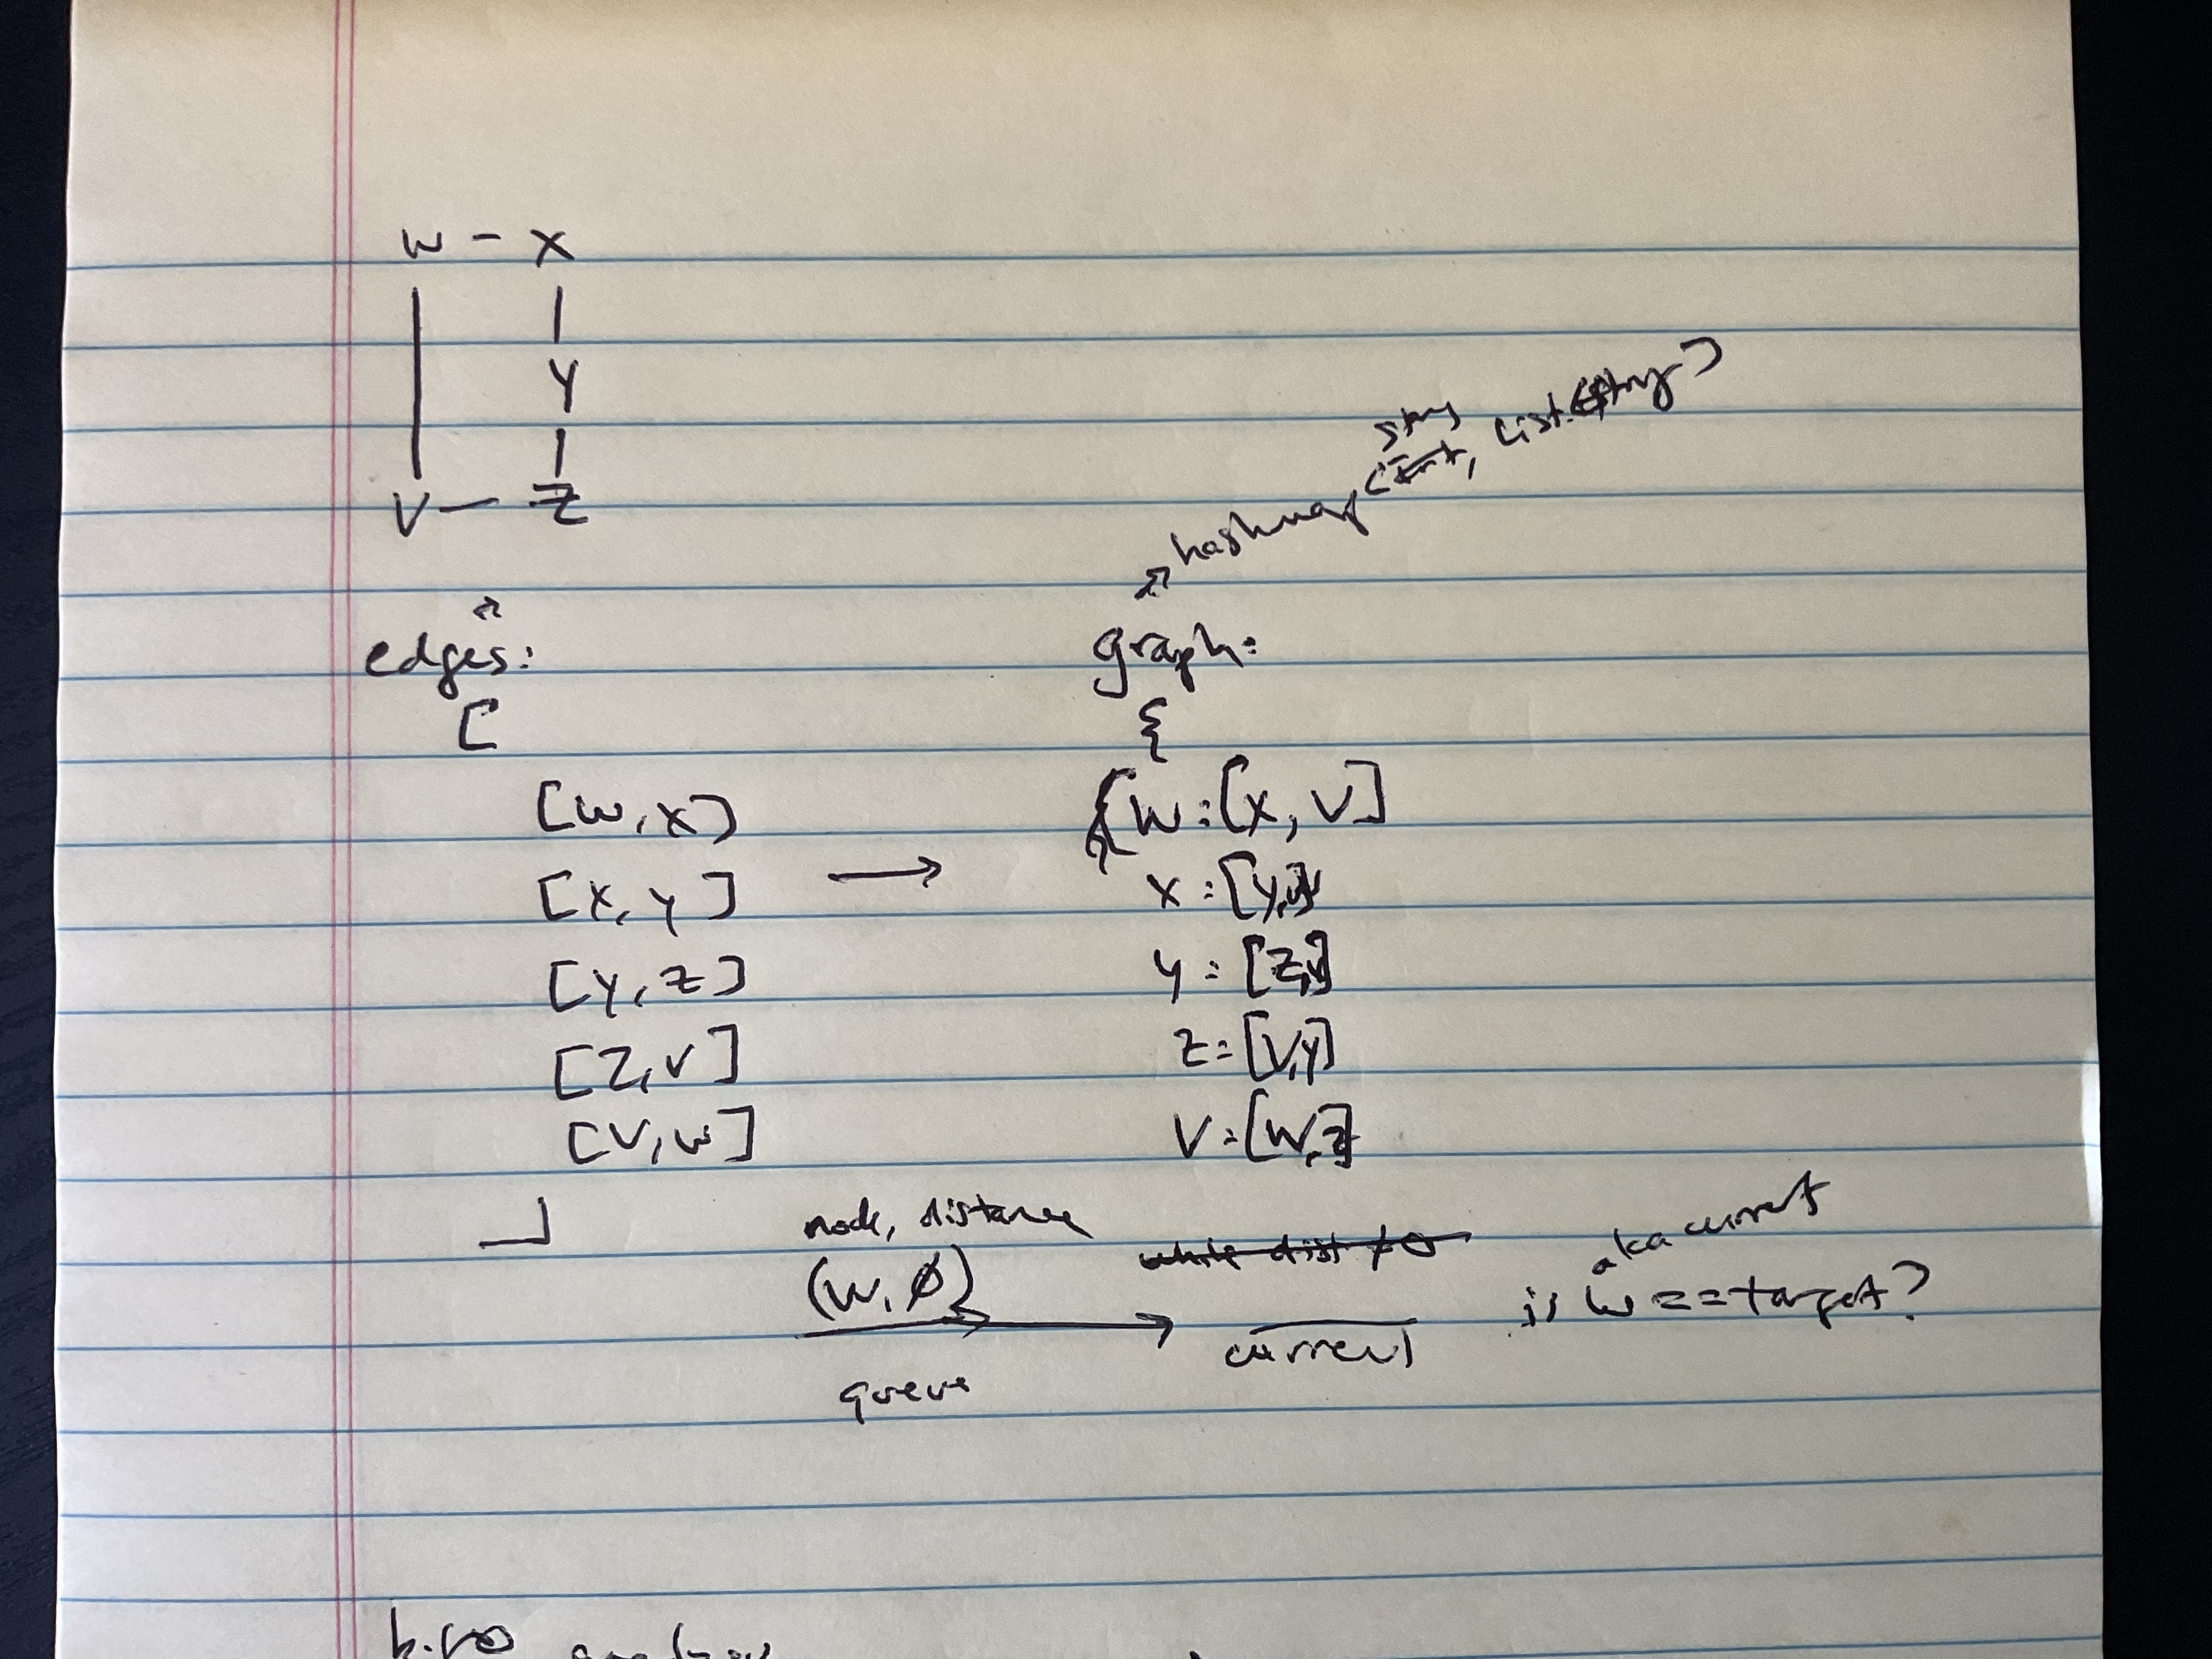 W - X
Y
V — Z
hashmap <int, List<String>
string
edges:
graph:
[
{
[W, X]
{W:[X, V]
[X, Y]
→
X:[Y,W]
[Y, Z]
Y:[Z,X]
[Z, V]
Z:[V,Y]
[V, W]
V:[W,Z]
]
node, distance
while dist ≠ 0
aka current
(W, Ø)
is W == target?
queue
current